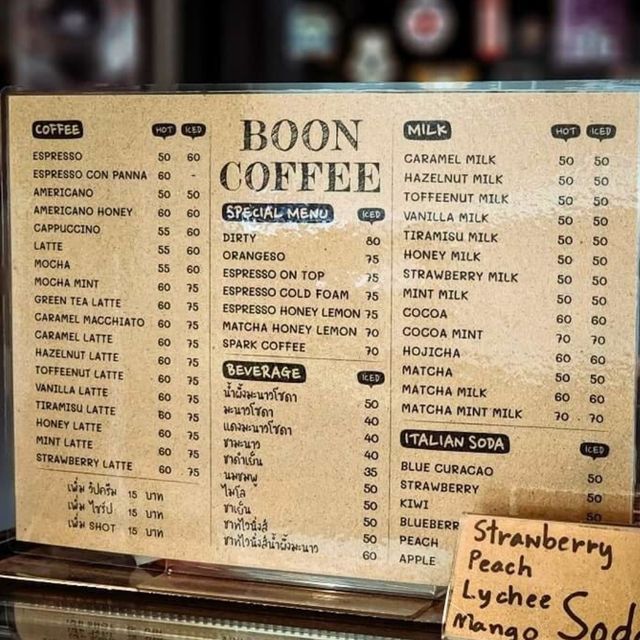 COFFEE HOT ICED
ESPRESSO 50 60
ESPRESSO CON PANNA 60 -
AMERICANO 50 50
AMERICANO HONEY 60 60
CAPPUCCINO 55 60
LATTE 55 60
MOCHA 55 60
MOCHA MINT 60 75
GREEN TEA LATTE 60 75
CARAMEL MACCHIATO 60 75
CARAMEL LATTE 60 75
HAZELNUT LATTE 60 75
TOFFEENUT LATTE 60 75
VANILLA LATTE 60 75
TIRAMISU LATTE 60 75
HONEY LATTE 60 75
MINT LATTE 60 75
STRAWBERRY LATTE 60 75
เพิ่ม วิปครีม 15 บาท
เพิ่ม ไซรัป 15 บาท
เพิ่ม SHOT 15 บาท
BOON
COFFEE
SPECIAL MENU ICED
DIRTY 80
ORANGESO 75
ESPRESSO ON TOP 75
ESPRESSO COLD FOAM 75
ESPRESSO HONEY LEMON 75
MATCHA HONEY LEMON 70
SPARK COFFEE 70
BEVERAGE ICED
น้ำผึ้งมะนาวโซดา 50
มะนาวโซดา 40
แดงมะนาวโซดา 40
ชามะนาว 40
ชาดำเย็น 35
นมชมพู 50
ไมโล 50
ชาเย็น 50
ชาทไวนิ่งส์ 50
ชาทไวนิ่งส์น้ำผึ้งมะนาว 60
MILK HOT ICED
CARAMEL MILK 50 50
HAZELNUT MILK 50 50
TOFFEENUT MILK 50 50
VANILLA MILK 50 50
TIRAMISU MILK 50 50
HONEY MILK 50 50
STRAWBERRY MILK 50 50
MINT MILK 50 50
COCOA 60 60
COCOA MINT 70 70
HOJICHA 60 60
MATCHA 50 50
MATCHA MILK 60 60
MATCHA MINT MILK 70 70
ITALIAN SODA ICED
BLUE CURACAO 50
STRAWBERRY 50
KIWI 50
BLUEBERR 50
PEACH
APPLE
Strawberry
Peach
Lychee
Mango Sod